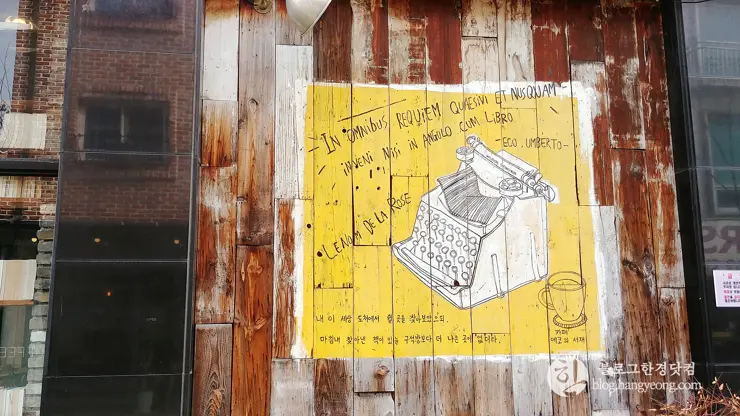 - IN OMNIBUS REQUIEM QUAESIVI ET NUSQUAM -
INVENI NISI IN ANGULO CUM LIBRO
- ECO. UMBERTO -
LE NOM DE LA ROSE
내 이 세상 도처에서 쉴 곳을 찾아보았으되
마침내 찾아낸 책이 있는 구석방보다 더 나은 곳이 없더라.
카페
에코의 서재
블로그한경닷컴
blog.hangyeong.com